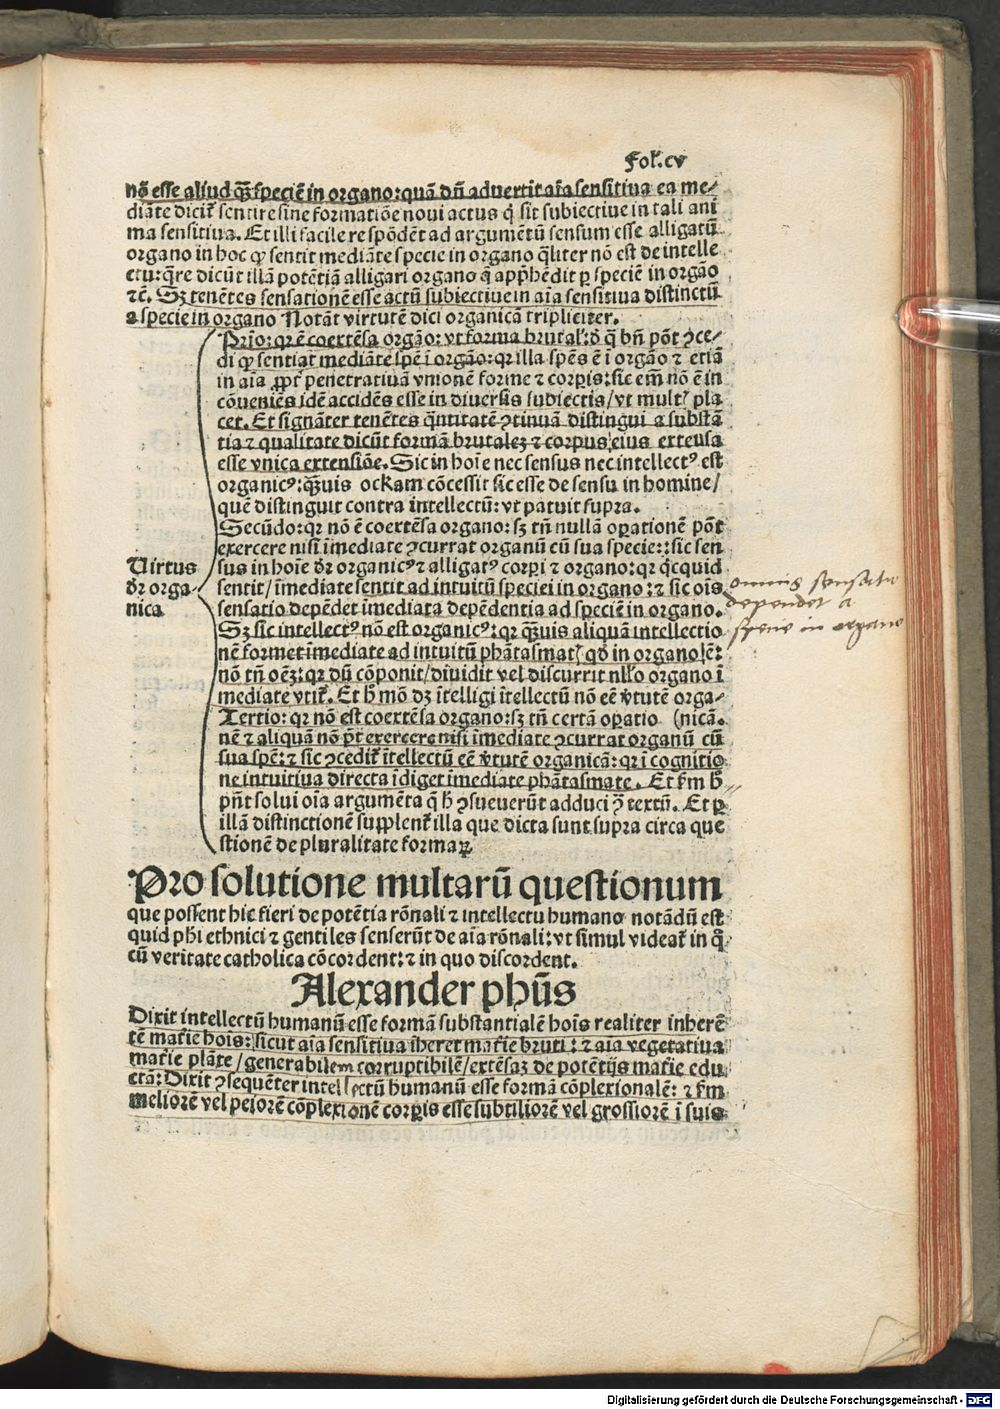 Fol. cv
nō esse aliud qꝫ̄ speciē in organo: quā dn̄ aduertit aīa sensitiua ea me⸗
diāte dicit̄ sentire sine formatiōe noui actus q̄ sit subiectiue in tali ani
ma sensitiua. Et illi facile respōdēt ad argumētū sensum esse alligatū
organo in hoc ꝙ sentit mediāte specie in organo q̄liter nō est de intelle
ctu: q̄re dicūt illā potētiā alligari organo q̄ app̄hēdit ꝑ speciē in orgāo
ꝛc̄. Sꝫ tenētes sensationē esse actū subiectiue in aīa sensitiua distinctū
a specie in organo Notāt virtutē dici organicā tripliciter.
Prīo: qꝛ ē coextēsa orgāo: vt forma brutal': d̄ q̄ bn̄ pōt ꝯce⸗
di ꝙ sentiat mediāte spē ī orgāo: qꝛ illa spēs ē ī orgāo ꝛ etiā
in aīa ꝓpt̄ penetratiuā vnionē forme ꝛ corꝑis: sic em̄ nō ē in
cōueniēs idē accidēs esse in diuersis subiectis/ vt multꝭ pla
cet. Et signāter tenētes q̄ntitatē ꝯtinuā distingui a substā
tia ꝛ qualitate dicūt formā brutaleꝫ ꝛ corpus eius extensa
esse vnica extensiōe. Sic in hoīe nec sensus nec intellectꝰ est
organicꝰ: qꝫ̄uis ockam cōcessit sic esse de sensu in homine/
quē distinguit contra intellectū: vt patuit supra.
Secūdo: qꝛ nō ē coextēsa organo: sꝫ tn̄ nullā oꝑationē pōt
exercere nisi īmediate ꝯcurrat organū cū sua specie: sic sen
Virtus
dr̄ orga⸗
nica
sus in hoīe dr̄ organicꝰ ꝛ alligatꝰ corꝑi ꝛ organo: qꝛ q̄cquid
sentit/ īmediate sentit ad intuitū speciei in organo: ꝛ sic oīs
sensatio depēdet īmediata depēdentia ad speciē in organo.
omnis sensatio
dependet a
specie in organo
Sꝫ sic intellectꝰ nō est organicꝰ: qꝛ qꝫ̄uis aliquā intellectio
nē formet īmediate ad intuitū phātasmatꝭ qd̄ in organo ē:
nō tn̄ oēꝫ: qꝛ dū cōponit/ diuidit vel discurrit nll'o organo ī
mediate vtit̄. Et h̄ mō dꝫ ītelligi ītellectū nō eē v̄tutē orga⸗
Tertio: qꝛ nō est coextēsa organo: sꝫ tn̄ certā oꝑatio (nicā.
nē ꝛ aliquā nō pōt exercere nisi īmediate ꝯcurrat organū cū
sua spē: ꝛ sic ꝯcedit̄ ītellectū eē v̄tutē organicā: qꝛ ī cognitio
ne intuitiua directa īdiget īmediate phātasmate. Et ẜm h̄
pn̄t solui oīa argumēta q̄ h̄ ꝯsueuerūt adduci ꝯ̄ textū. Et ꝑ
illā distinctionē supplent̄ illa que dicta sunt supra circa que
stionē de pluralitate formaꝝ.
Pro solutione multarū questionum
que possent hic fieri de potētia rōnali ꝛ intellectu humano notādū est
quid ph̄i ethnici ꝛ gentiles senserūt de aīa rōnali: vt simul videat̄ in q̄
cū veritate catholica cōcordent: ꝛ in quo discordent.
Alexander ph̄us
Dixit intellectū humanū esse formā substantialē hoīs realiter inherē
tē mat̄ie hoīs: sicut aīa sensitiua īheret mat̄ie bruti: ꝛ aīa vegetatiua
mat̄ie plāte/ generabilem corruptibilē/ extēsaꝫ de potētijs mat̄ie edu
ctā: Dixit ꝯsequēter intellectū humanū esse formā cōplexionalē: ꝛ ẜm
meliorē vel peiorē cōplexionē corꝑis esse subtiliorē vel grossiorē ī suis
Digitalisierung gefördert durch die Deutsche Forschungsgemeinschaft - DFG